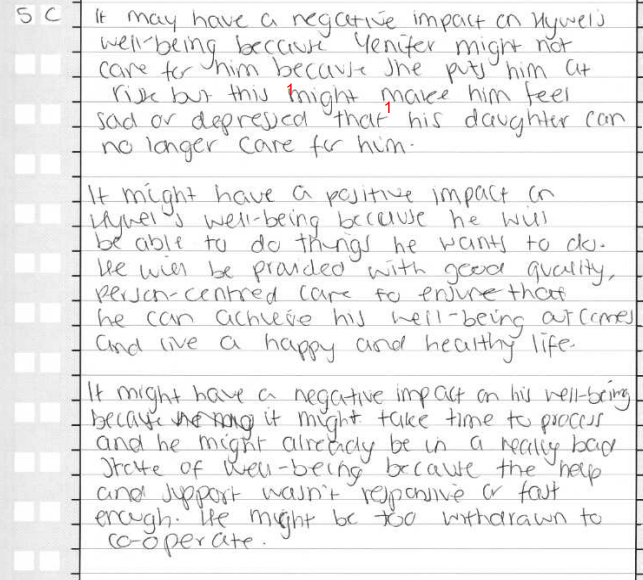 5 C
It may have a negative impact on Hywel's
well-being because Yenifer might not
care for him because she puts him at
risk but this might make him feel
1
sad or depressed that his daughter can
1
no longer care for him.
It might have a positive impact on
Hywel's well-being because he will
be able to do things he wants to do.
He will be provided with good quality,
person-centred care to ensure that
he can achieve his well-being outcomes
and live a happy and healthy life.
It might have a negative impact on his well-being
because it might take time to process
and he might already be in a really bad
state of well-being because the help
and support wasn't responsive or fast
enough. He might be too withdrawn to
co-operate.